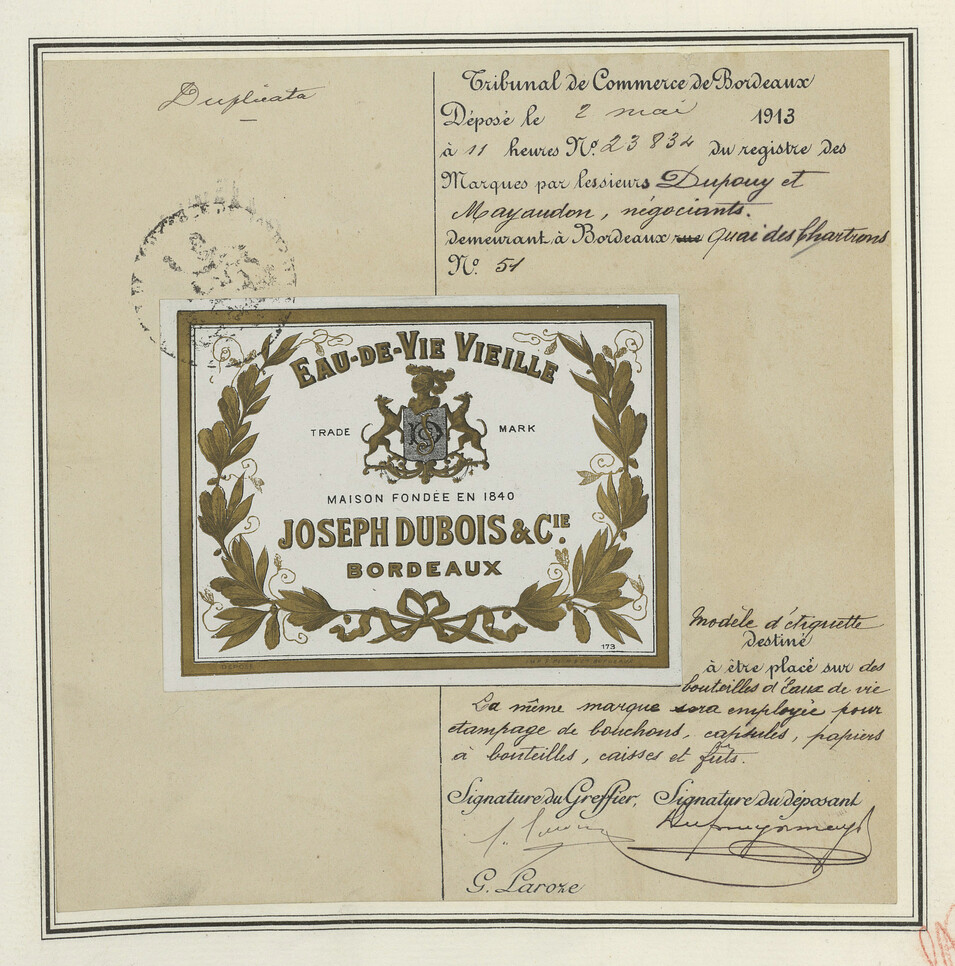 Duplicata
Tribunal de Commerce de Bordeaux
Déposé le 2 mai 1913
à 11 heures No. 23834 du registre des
Marques par lessieurs Dupouy et
Mayaudon, négociants.
demeurant à Bordeaux rue Quai des Chartrons
No. 51
EAU-DE-VIE VIEILLE
TRADE MARK
MAISON FONDÉE EN 1840
JOSEPH DUBOIS & CIE.
BORDEAUX
173
DÉPOSÉ
Modèle d'étiquette
destiné
à être placé sur des
bouteilles d'Eaux de vie
La même marque sera employée pour
étampage de bouchons, capsules, papiers
à bouteilles, caisses et fûts.
Signature du Greffier, Signature du déposant
G. Laroze